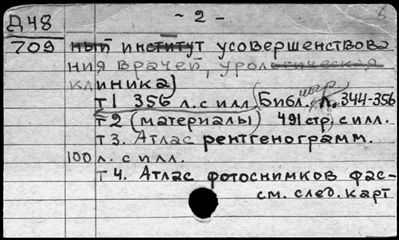 - 2 -
Д48
709
ный институт усовершенствова
ния врачей, урологическая
клиника)
т1 356 л. с илл. (Библ. л. 344-356
т2 (материалы) 491 стр. с илл.
т3. Атлас рентгенограмм.
100 л. с илл.
т4. Атлас фотоснимков фас-
см. след. карт